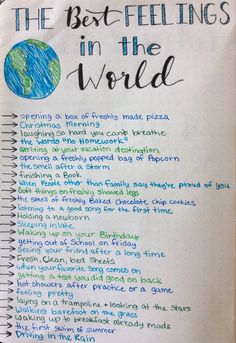 THE Best FEELINGS
in the
World
opening a box of freshly made pizza
Christmas Morning
laughing so hard you can't breathe
the words "no Homework"
arriving at your vacation destination
opening a freshly popped bag of Popcorn
the smell after a Storm
finishing a Book
When People other than family say they're proud of you
Soft things on freshly shaved legs
the smell of freshly Baked Chocolate chip cookies
Listening to a good song for the first time
Holding a newborn
Sleeping in late
Waking up on your Birthday
getting out of School on friday
Seeing your friend after a long time
Fresh, Clean, bed Sheets
when your favorite Song comes on
getting a test you did good on back
hot showers after practice or a game
feeling pretty
laying on a trampoline + looking at the Stars
Walking barefoot on the grass
Waking up to breakfast already made
the first swim of summer
Driving in the Rain